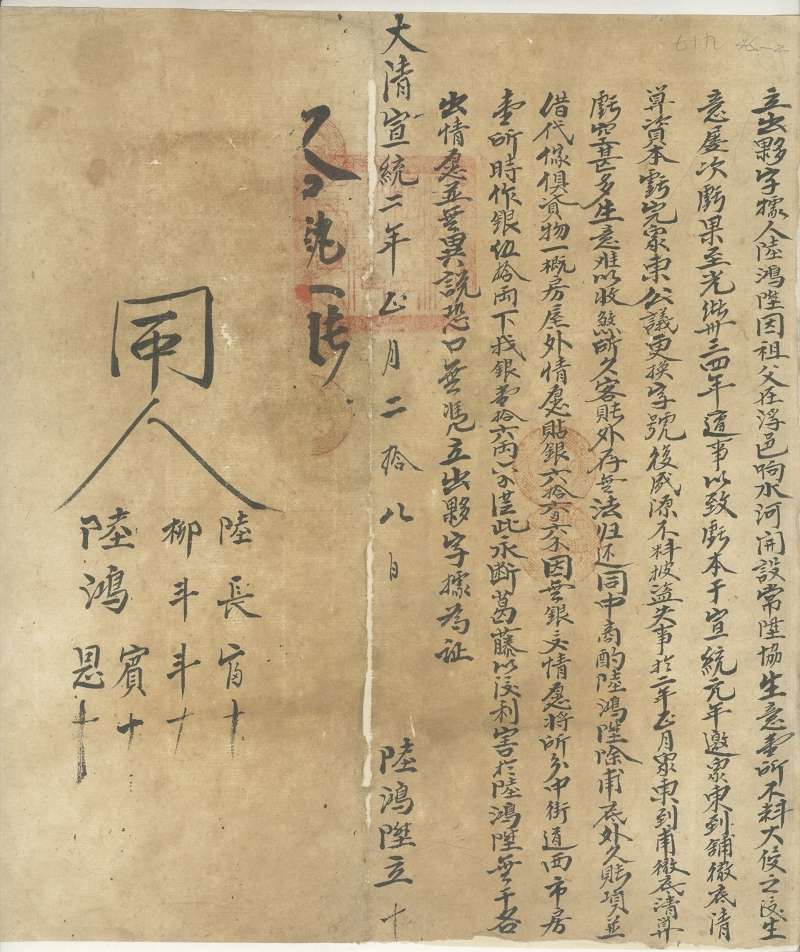 立出夥字據人陸鴻陞因祖父在浮邑响水河開設常陞協生意壹所不料大侵之後生
意屡次虧果至光緒卅三四年遭事以致虧本于宣統元年邀衆東到舖徹底清
算資本虧完衆東公議更換字號後盛源不料被盗失事於二年正月衆東到甫徹底清算
虧空甚多生意难以收煞所欠客賬外存無法归还同中商酌陸鴻陞除甫底外欠賬項並
借代傢俱貨物一概房屋外情愿貼銀六拾六因無銀交情愿將所分中街道西市房
壹所時作銀伍拾兩下找銀壹拾六兩從此永断葛藤以後利害於陸鴻陞無干各
出情愿並無異說恐口無凴立出夥字據為证
大清宣統二年正月二拾八日 陸鴻陞立十
一張
同人
陸長富十
柳斗斗十
陸鴻賓十
恩十